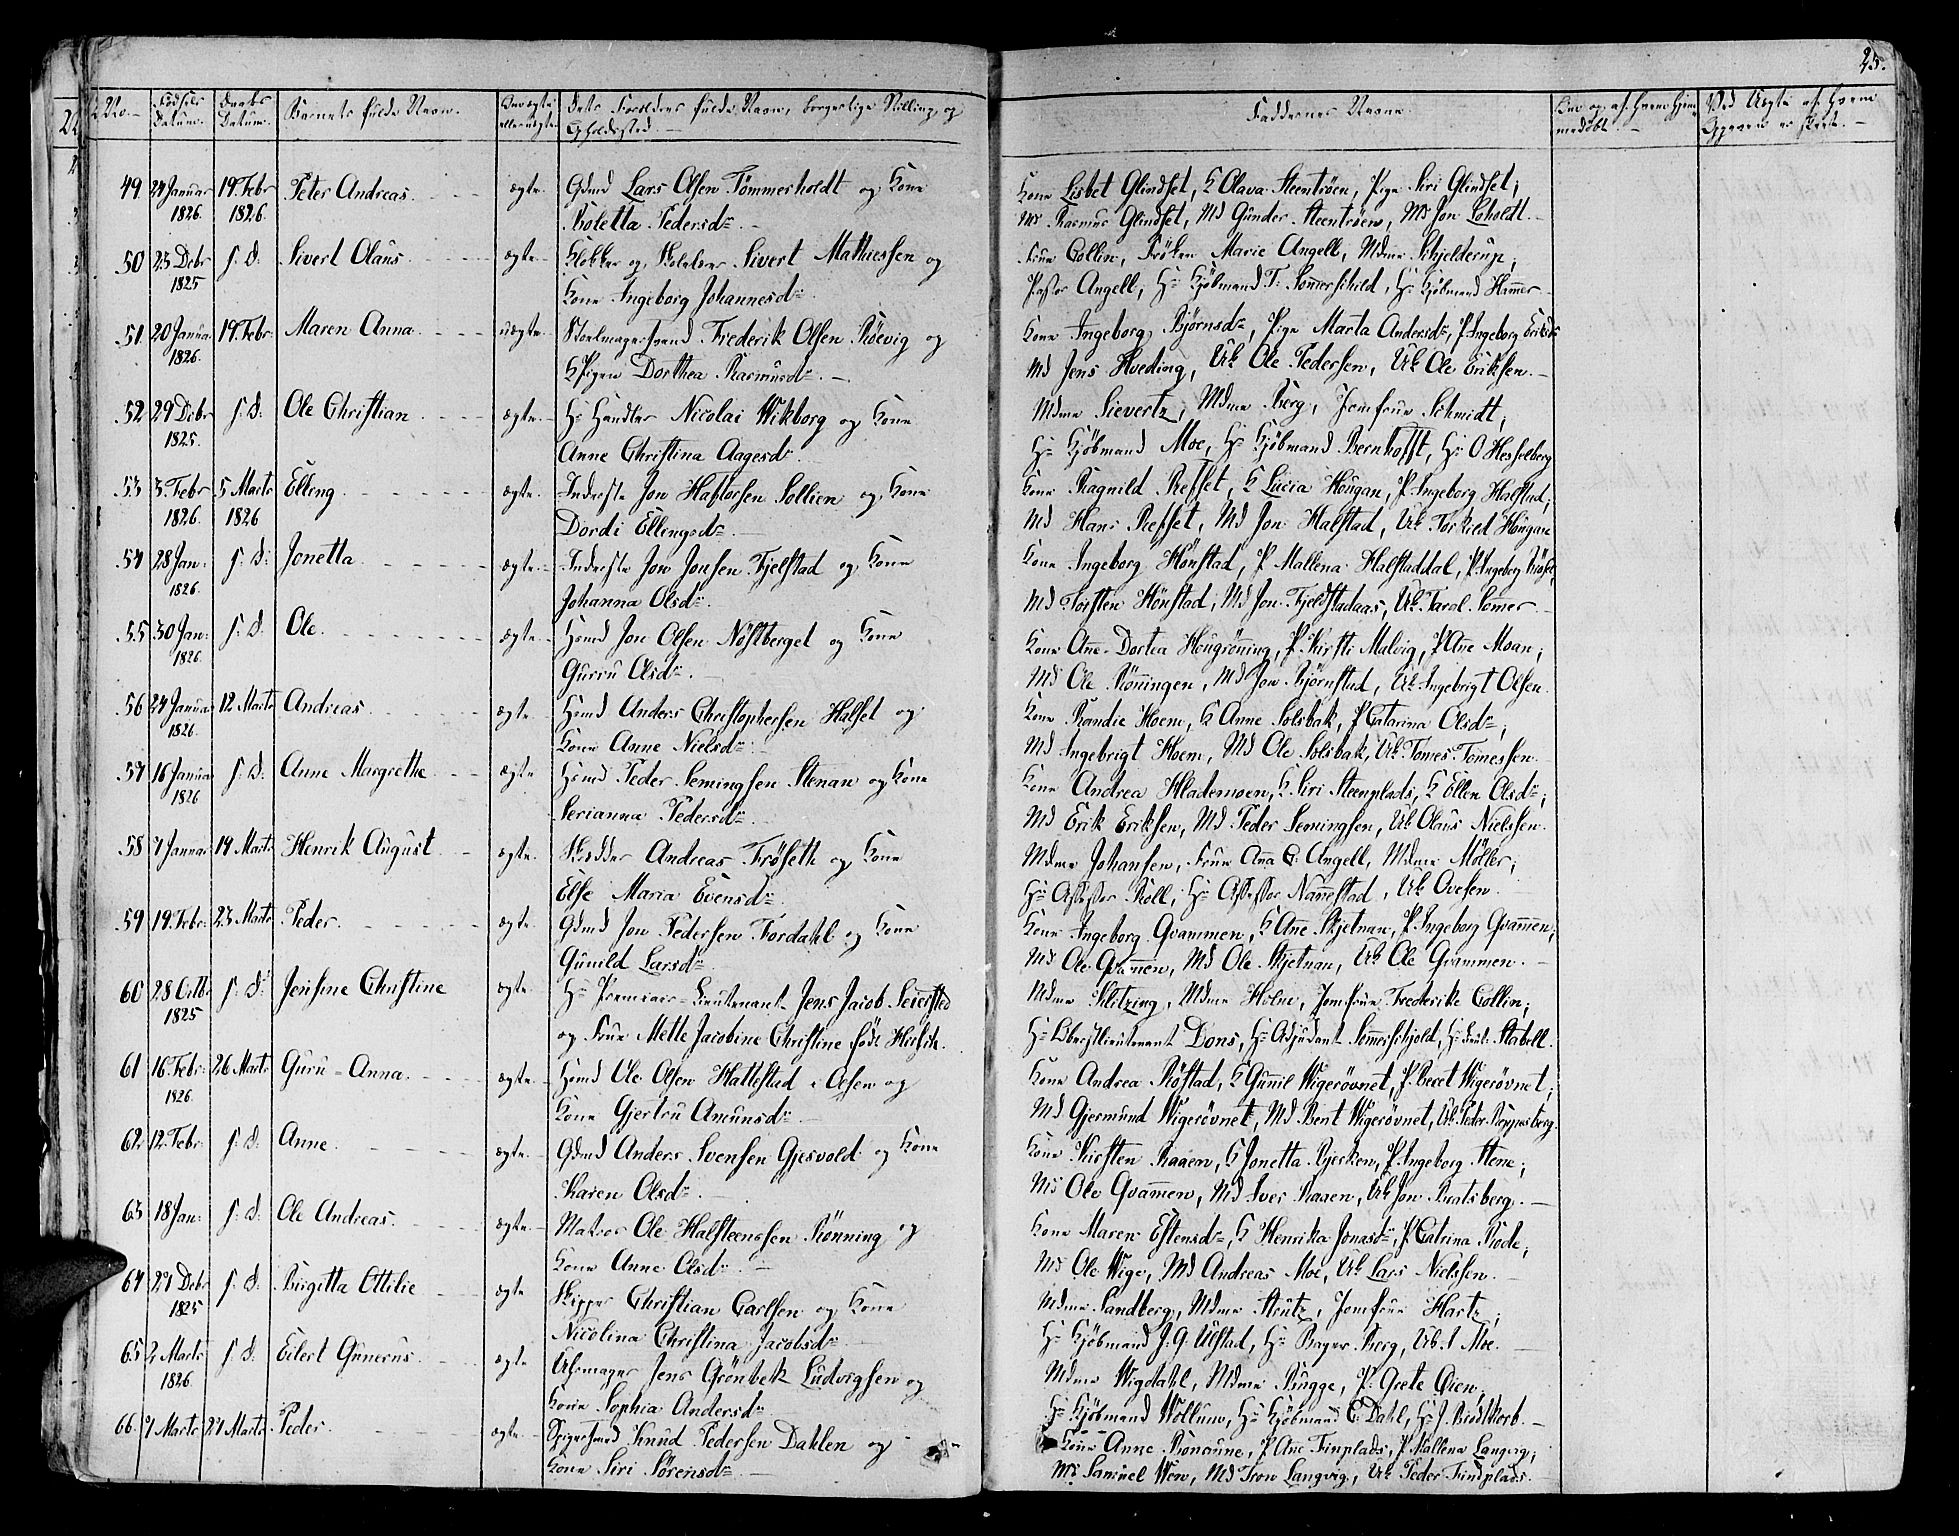 25.
No.
Fødsels Datum.
Daabs Datum.
Barnets fulde Navn.
Om ægte eller uægte
Dets Forældres fulde Navn, borgerlige Stilling og
Opholdssted.
Faddernes Navne
49 24 Januar 1826. 19. Febr 1826. Peter Andreas. ægte. Gdmd Lars Olsen Tømmerholdt og Kone
Boletta Pedersdr.
Kone Lisbet Glindset, K Olava Steentröen, Pige Siri Glindset,
Md Rasmus Glindset, Md Gunder Steentröen, Md Jon Loholdt.
50 23 Debr 1825 s. d. Sivert Olaus ægte. Klokker og Skolelærer Sivert Mathiessen og
Kone Ingeborg Johannesdr
Frue Collin, Fröken Marie Angell, Mdme Schjelderup,
Pastor Angell, Hr Kjöbmand F. Sommerschild, Hr Kjöbmand Hammer
51 20 Januar 1826. 19. Febr. Maren Anna uægte. Frederik Olsen Röevig og
Pigen Dorthea Rasmusdr.
Kone Ingeborg Björnsdr, Pige Marta Andersdr, P. Ingeborg Eriksdr
Md Jens Hveding, Uk Ole Pedersen, Uk Ole Eriksen.
52 29 Debr 1825. s. d. Ole Christian ægte. Hr Handler Nicolai Wikborg og Kone
Anne Christina Aagesdr.
Mdme Sievertz, Mdme Berg, Jomfrue Schmidt,
Hr Kjöbmand Moe, Hr Kjöbmand Bernhofft, Hr O Hesselberg
53 3. Febr 1826. 5 Marts 1826 Elling ægte. Inderste Jon Haftorsen Sollien og Kone
Dordi Ellingsdr.
Kone Ragnild Refset, K Lucia Hougan, P. Ingeborg Halstad,
Md Hans Refset, Md Jon Halstad, Uk Torkild Hougan
54 28 Jan. 1826. s. d. Jonetta ægte. Inderste Jon Jonsen Fjelstad og Kone
Johanna Olsdr.
Kone Ingeborg Hönstad, P Mallena Halstaddal, P. Ingeborg
Md Torsten Hönstad, Md Jon Fjeldstadaas, Uk Taral Sommer
55 30 Jan. 1826. s. d. Ole ægte. Hsmd Jon Olsen Nöstberget og Kone
Gurru Olsdr.
Kone Ane Dortea Hougröning, P. Kirsti Malvig, P Ane Moan,
Md Ole Rönningen, Md Jon Björnstad, Uk Ingebrigt Olsen.
56 24 Januar 1826. 12 Marts Andreas ægte. Hsmd Anders Christophersen Halset og
Kone Anne Nielsdr.
Kone Randie Hoem, K Anne Solsbak, P Catarina Olsdr,
Md Ingebrigt Hoem, Md Ole Solsbak, Uk Tomes Tomessen
57 16 Januar 1826 s. d. Anne Margrethe ægte Hsmd Peder Semingsen Stenan og Kone
Serianna Pedersdr.
Kone Andrea Hlademoen, K Siri Steenplads, K Ellen Olsdr,
Md Erik Eriksen, Md Peder Semingsen, Uk Olaus Nielssen.
58 7 Januar 14 Marts Henrik August ægte. Skredder Andreas Fröseth og Kone
Else Maria Evensdr.
Mdme Johansen, Frue Ana C. Angell, Mdme Möller,
Hr Assessor Roll, Hr Assessor Nannestad, Uk Ovesen.
59 19. Febr. 23 Marts Peder ægte. Gdmd Jon Pedersen Fordahl og Kone
Gunild Larsdr.
Kone Ingeborg Qvammen, K Ane Skjetnan, P. Ingeborg Qvammen,
Md Ole Qvammen, Md Ole Skjetnan, Uk Ole Qvammen.
60 28 Octbr 1825 s. d. Jensine Christine ægte. Hr Premier-Lieutenant Jens Jacob Seiersted
og Frue Mette Jacobine Christine föd Hirsch.
Mdme Klitzing, Mdme Holm, Jomfrue Frederike Collin,
Hr Oberstlieutenant Dons, Hr Adjudant Sommerschjold, Hr Stabell.
61 16. Febr. 1826. 26 Marts Guru-Anna ægte. Hsmd Ole Olsen Hattestad og
Kone Gjertru Amunsdr
Kone Andrea Röstad, K Gunnil Wigerövnet, P. Beret Wigerövnet,
Md Gjermund Wigerövnet, Md Bent Wigerövnet, Uk Peder Reppesberg.
62. 12. Febr. s. d. Anne ægte. Gdmd Anders Svensen Gjesvold og Kone
Karen Olsdr.
Kone Kirsten Raaen, K Jonetta Bjerken, P. Ingeborg Stene,
Md Ole Qvammen, Md Iver Raaen, Uk Jon Bratsberg.
63 18 Jan. s. d. Ole Andreas. ægte. Matros Ole Halsteenssen Rönning og
Kone Anne Olsdr.
Kone Maren Estensdr, K Henrika Jonasdr, P Catrina Rode,
Md Ole Wige, Md Andreas Moe, Uk Lars Nielssen.
64 27 Debr 1825 s. d. Birgitta Ottilie ægte Skipper Christian Carlsen og Kone
Nicolina Christina Jacobsdr.
Mdme Sandberg, Mdme Strutz, Jomfrue Hartz,
Hr Kjöbmand J. G. Ulstad, Hr Bager Berg, Uk. Moe.
65 2 Marts 1826. s. d. Eilert Gunerus ægte Uhrmager Jens Grönbek Ludvigsen og
Kone Sophia Andersdr.
Mdme Wigdahl, Mdme Bugge, P. Grete Öien,
Hr Kjöbmand Wollum, Hr Kjöbmand C. Dahl, Hr J. Brodtkorb.
66. 7 Marts 27 Marts Peder ægte. Knud Pedersen Dahlen og
Kone Siri Sörensdr.
Kone Anne P Ane Finplads, P. Mallena Langvig,
Md Samuel Wen, Md Tron Langvig, Uk Peder Findplads.